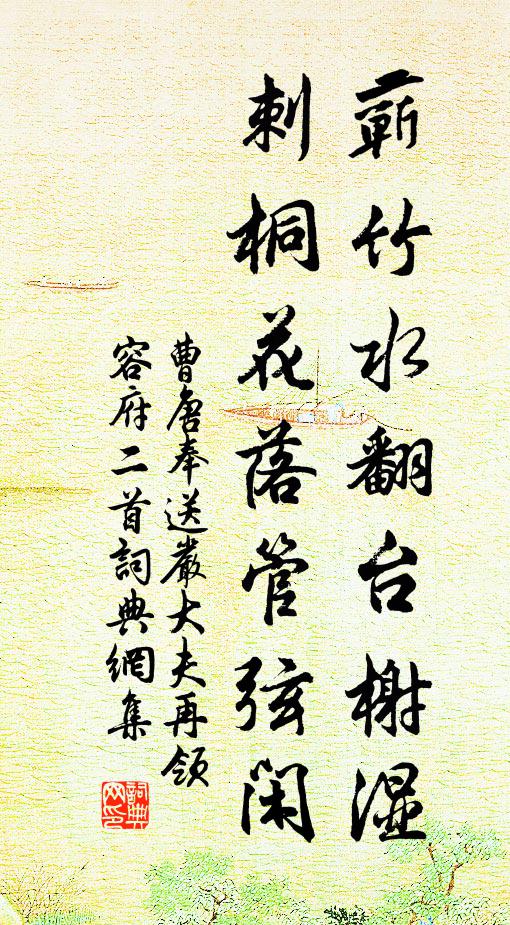 蕲竹水翻台榭湿
刺桐花落管弦闲
曹唐奉送嚴大夫再领
容府二首詞典網集
詞典网印